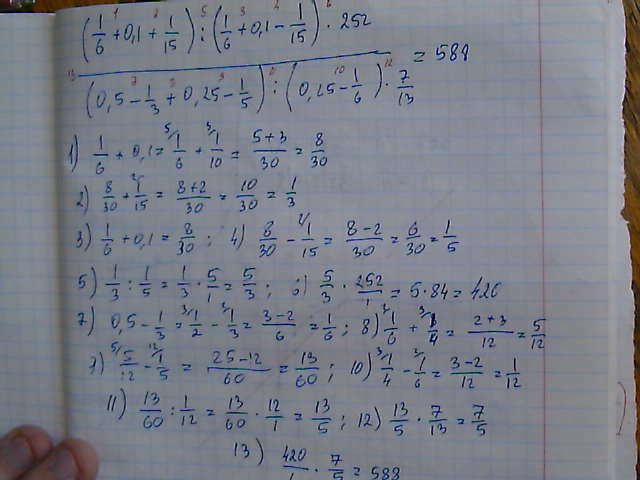 (1/6 + 0,1 + 1/15) : (1/6 + 0,1 - 1/15) · 252
(0,5 - 1/3 + 0,25 - 1/5) : (0,25 - 1/6) · 7/13 = 588
1) 1/6 + 0,1 = 1/6 + 1/10 = 5+3/30 = 8/30
2) 8/30 + 1/15 = 8+2/30 = 10/30 = 1/3
3) 1/6 + 0,1 = 8/30 ; 4) 8/30 - 1/15 = 8-2/30 = 6/30 = 1/5
5) 1/3 : 1/5 = 1/3 · 5/1 = 5/3 ; 6) 5/3 · 252/1 = 5·84 = 420
7) 0,5 - 1/3 = 1/2 - 1/3 = 3-2/6 = 1/6 ; 8) 1/6 + 1/4 = 2+3/12 = 5/12
9) 5/12 - 1/5 = 25-12/60 = 13/60 ; 10) 1/4 - 1/6 = 3-2/12 = 1/12
11) 13/60 : 1/12 = 13/60 · 12/1 = 13/5 ; 12) 13/5 · 7/13 = 7/5
13) 420/1 · 7/5 = 588